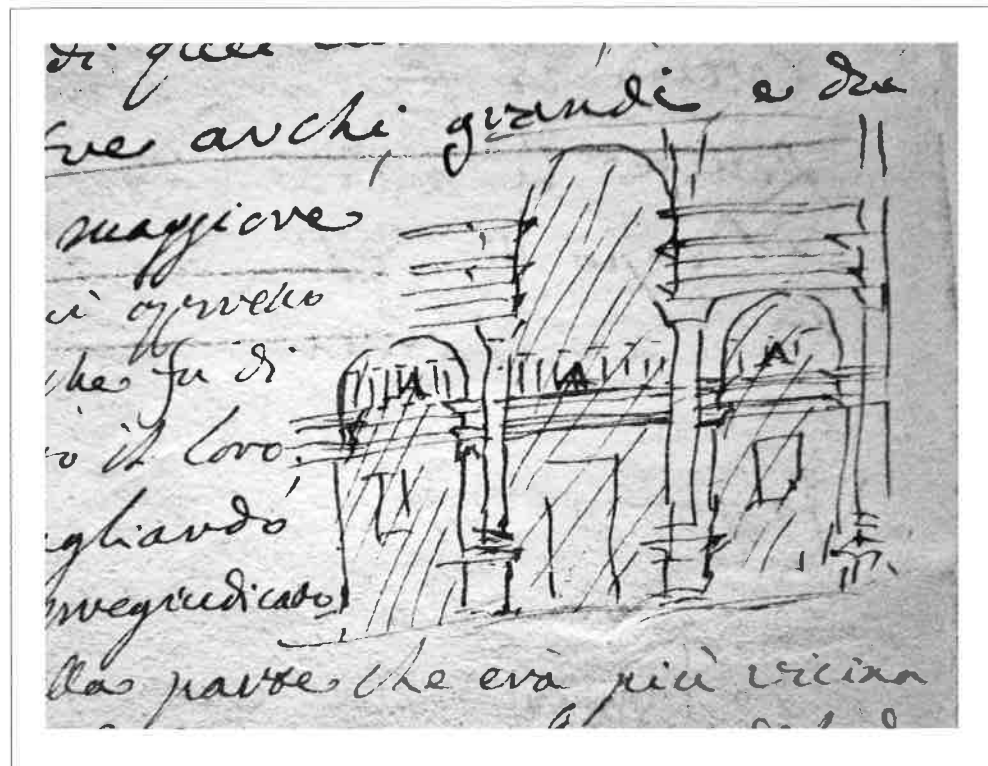 di quei
tre archi grandi e due
maggiore
che fu di
il loro
agliando
pregiudicato
lla parte che era più vicina
A A A